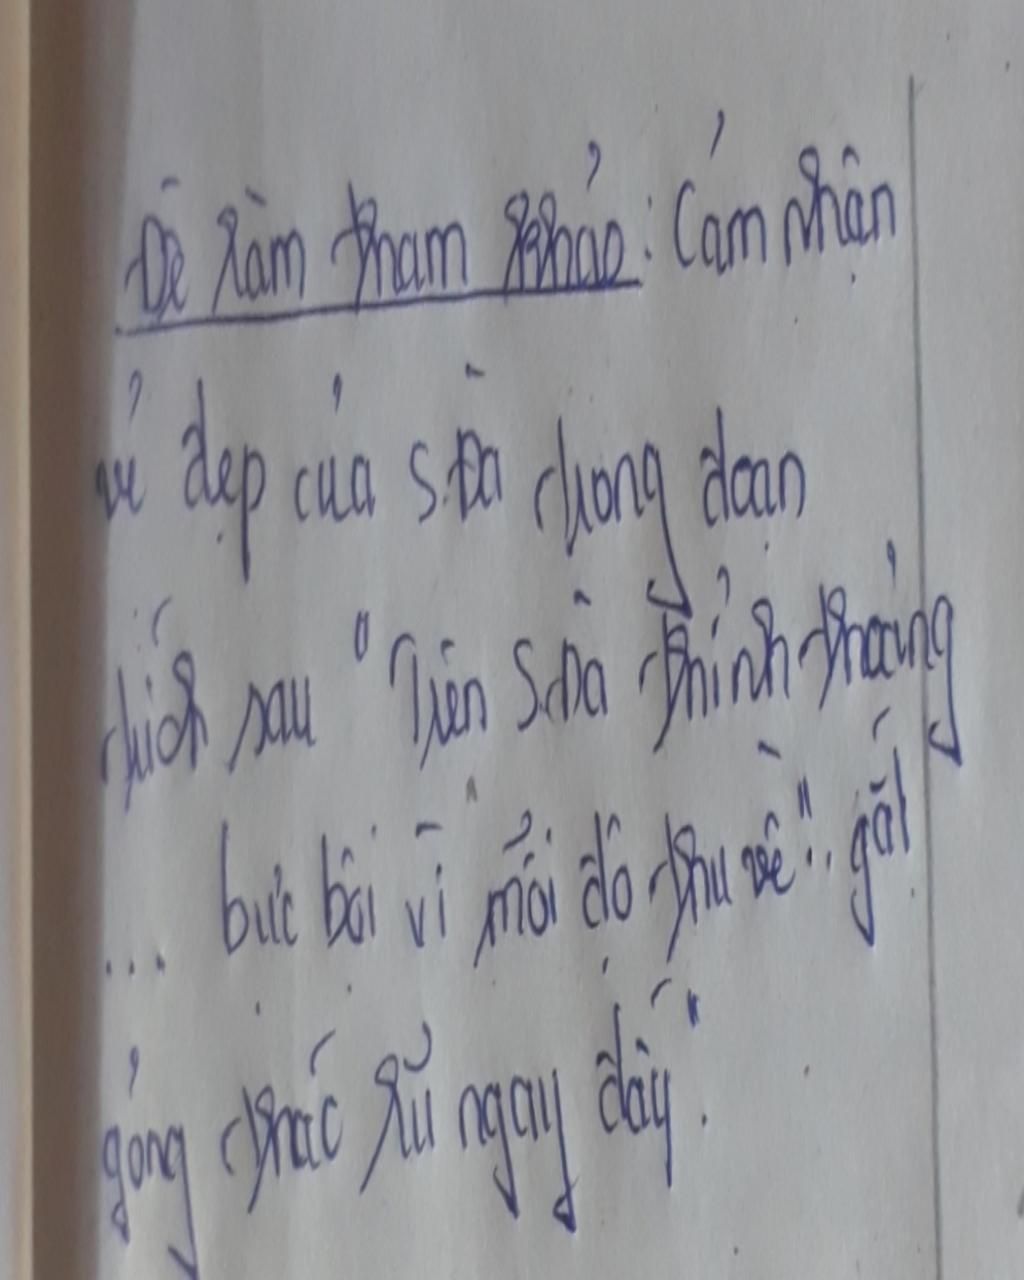 Đề làm tham khảo: Cảm nhận
vẻ đẹp của S.Đà trong đoạn
trích sau "Trên S.Đà thỉnh thoảng
... bực bội vì mỗi độ thu về"... gắt
gỏng thác lũ ngay đấy".